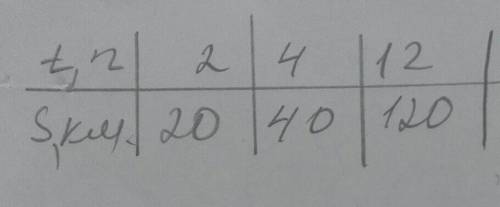 t, г 2 4 12
S, км. 20 40 120